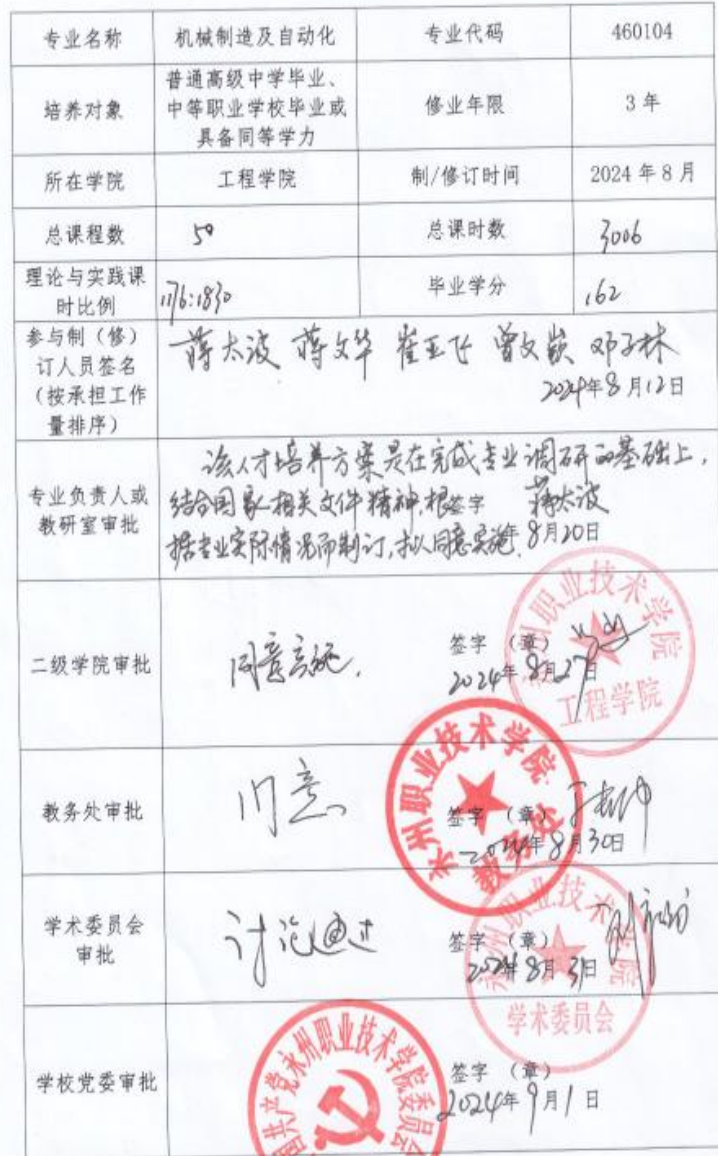 专业名称 机械制造及自动化 专业代码 460104
普通高级中学毕业、
培养对象 中等职业学校毕业或 修业年限 3 年
具备同等学力
所在学院 工程学院 制/修订时间 2024 年 8 月
总课程数 50 总课时数 3006
理论与实践课
时比例 1176:1830 毕业学分 162
参与制（修）
订人员签名
（按承担工作
量排序）
蒋太波 蒋文华 崔亚飞 曾文 邓子林
2024年8月12日
专业负责人或
教研室审批
该人才培养方案是在完成专业调研的基础上，
结合国家相关文件精神，根签字 蒋太波
据专业实际情况而制订，拟同意实施。8月20日
二级学院审批
同意实施.
签字 （章）
2024年8月27日
永州职业技术学院
工程学院
教务处审批
同意
签字 （章）
2024年8月30日
永州职业技术学院
教务处
学术委员会
审批
讨论通过
签字 （章）
2024年8月31日
永州职业技术学院
学术委员会
学校党委审批
签字 （章）
2024年9月1日
国共产党永州职业技术学院委员会